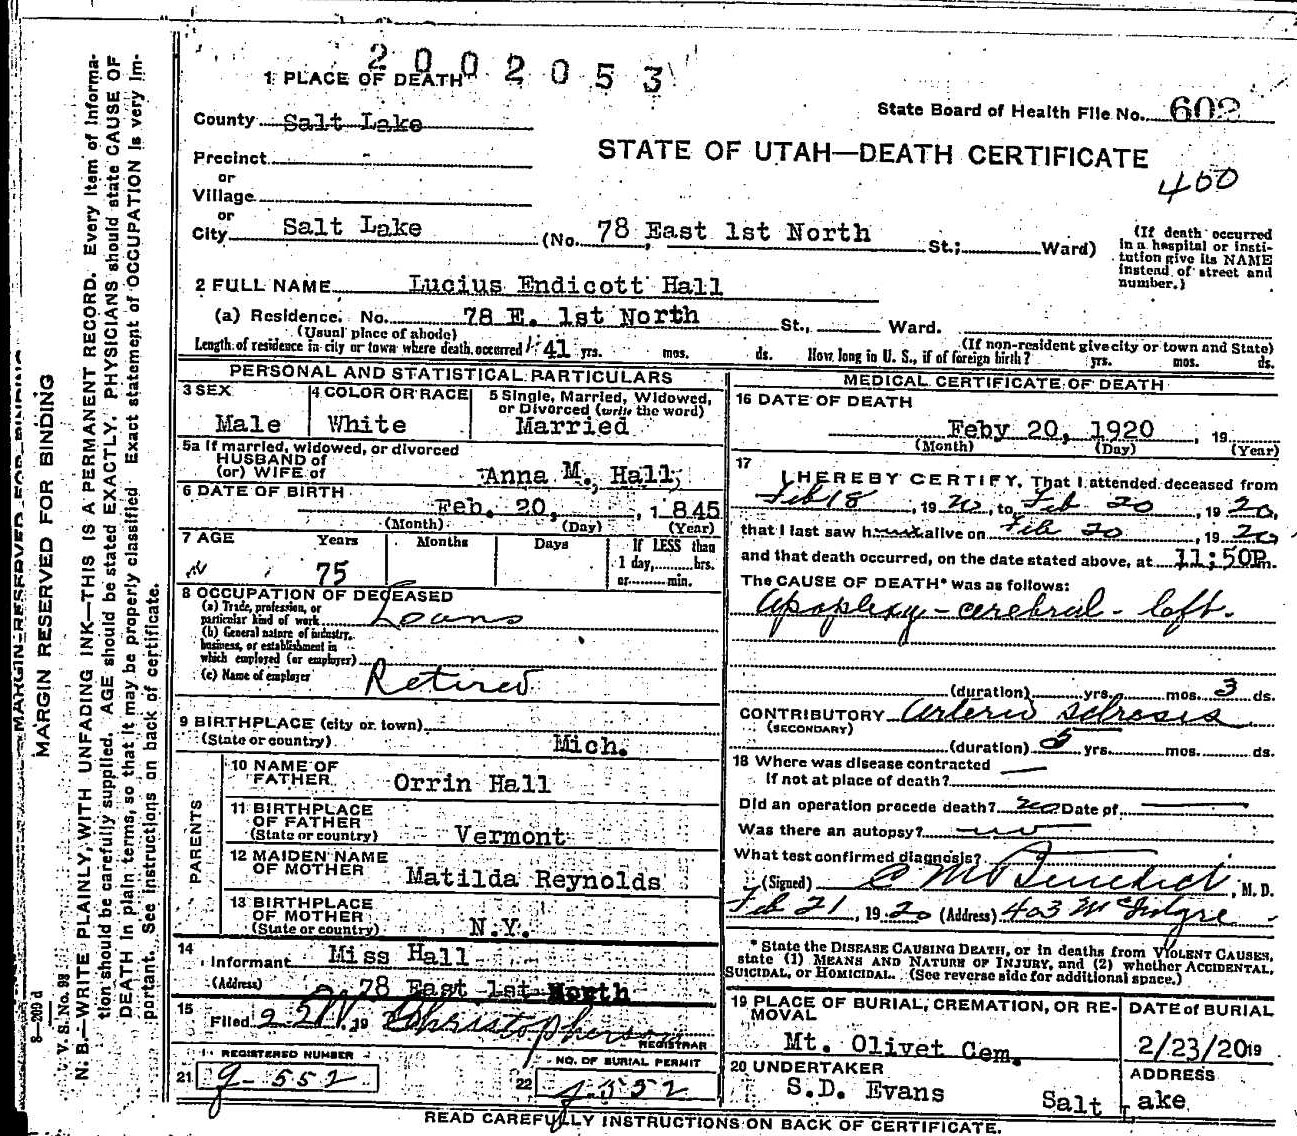 2002053
1 PLACE OF DEATH
State Board of Health File No. 602
County Salt Lake
STATE OF UTAH—DEATH CERTIFICATE
400
Precinct -
or
Village
or
City Salt Lake (No. 78 East 1st North St.; Ward)
(If death occurred in a hospital or insti-
tution give its NAME
instead of street and
number.)
2 FULL NAME Lucius Endicott Hall
(a) Residence. No. 78 E. 1st North St., Ward.
(Usual place of abode) (If non-resident give city or town and State)
Length of residence in city or town where death occurred 41 yrs. mos. ds. How long in U. S., if of foreign birth? yrs. mos. ds.
PERSONAL AND STATISTICAL PARTICULARS
3 SEX
Male
4 COLOR OR RACE
White
5 Single, Married, Widowed,
or Divorced (write the word)
Married
5a If married, widowed, or divorced
HUSBAND of
(or) WIFE of Anna M. Hall
6 DATE OF BIRTH
Feb. 20, , 1845
(Month) (Day) (Year)
7 AGE Years Months Days
75
If LESS than
1 day, hrs.
or min.
8 OCCUPATION OF DECEASED
(a) Trade, profession, or
particular kind of work Loans
(b) General nature of industry,
business, or establishment in
which employed (or employer)
(c) Name of employer Retired
9 BIRTHPLACE (city or town)
(State or country) Mich.
PARENTS
10 NAME OF
FATHER Orrin Hall
11 BIRTHPLACE
OF FATHER
(State or country) Vermont
12 MAIDEN NAME
OF MOTHER Matilda Reynolds
13 BIRTHPLACE
OF MOTHER
(State or country) N.Y.
14
Informant Miss Hall
(Address) 78 East 1st North
15
Filed 2 19 Christopherson
REGISTRAR
REGISTERED NUMBER
21 g-552
NO. OF BURIAL PERMIT
22 g-552
MEDICAL CERTIFICATE OF DEATH
16 DATE OF DEATH
Feby 20, 1920 , 19
(Month) (Day) (Year)
17
I HEREBY CERTIFY, That I attended deceased from
Feb 18 , 1920, to Feb 20 , 1920,
that I last saw him alive on Feb 20 , 1920,
and that death occurred, on the date stated above, at 11:50P m.
The CAUSE OF DEATH* was as follows:
Apoplexy - cerebral - left.
(duration) yrs. mos. 3 ds.
CONTRIBUTORY Arterio sclrosis
(SECONDARY)
(duration) 5 yrs. mos. ds.
18 Where was disease contracted
if not at place of death?
Did an operation precede death? no Date of
Was there an autopsy? no
What test confirmed diagnosis?
(Signed) C M Benedict, M. D.
Feb 21, 1920 (Address) 403 McIntyre
* State the DISEASE CAUSING DEATH, or in deaths from VIOLENT CAUSES,
state (1) MEANS AND NATURE OF INJURY, and (2) whether ACCIDENTAL,
SUICIDAL, or HOMICIDAL. (See reverse side for additional space.)
19 PLACE OF BURIAL, CREMATION, OR RE-
MOVAL
Mt. Olivet Cem.
DATE of BURIAL
2/23/20 19
20 UNDERTAKER
S.D. Evans
ADDRESS
Salt Lake
READ CAREFULLY INSTRUCTIONS ON BACK OF CERTIFICATE.
MARGIN RESERVED FOR BINDING
MARGIN RESERVED FOR BINDING
8—209 d
V. S. No. 98
N. B.—WRITE PLAINLY, WITH UNFADING INK—THIS IS A PERMANENT RECORD. Every item of informa-
tion should be carefully supplied. AGE should be stated EXACTLY. PHYSICIANS should state CAUSE OF
DEATH in plain terms, so that it may be properly classified Exact statement of OCCUPATION is very im-
portant. See instructions on back of certificate.